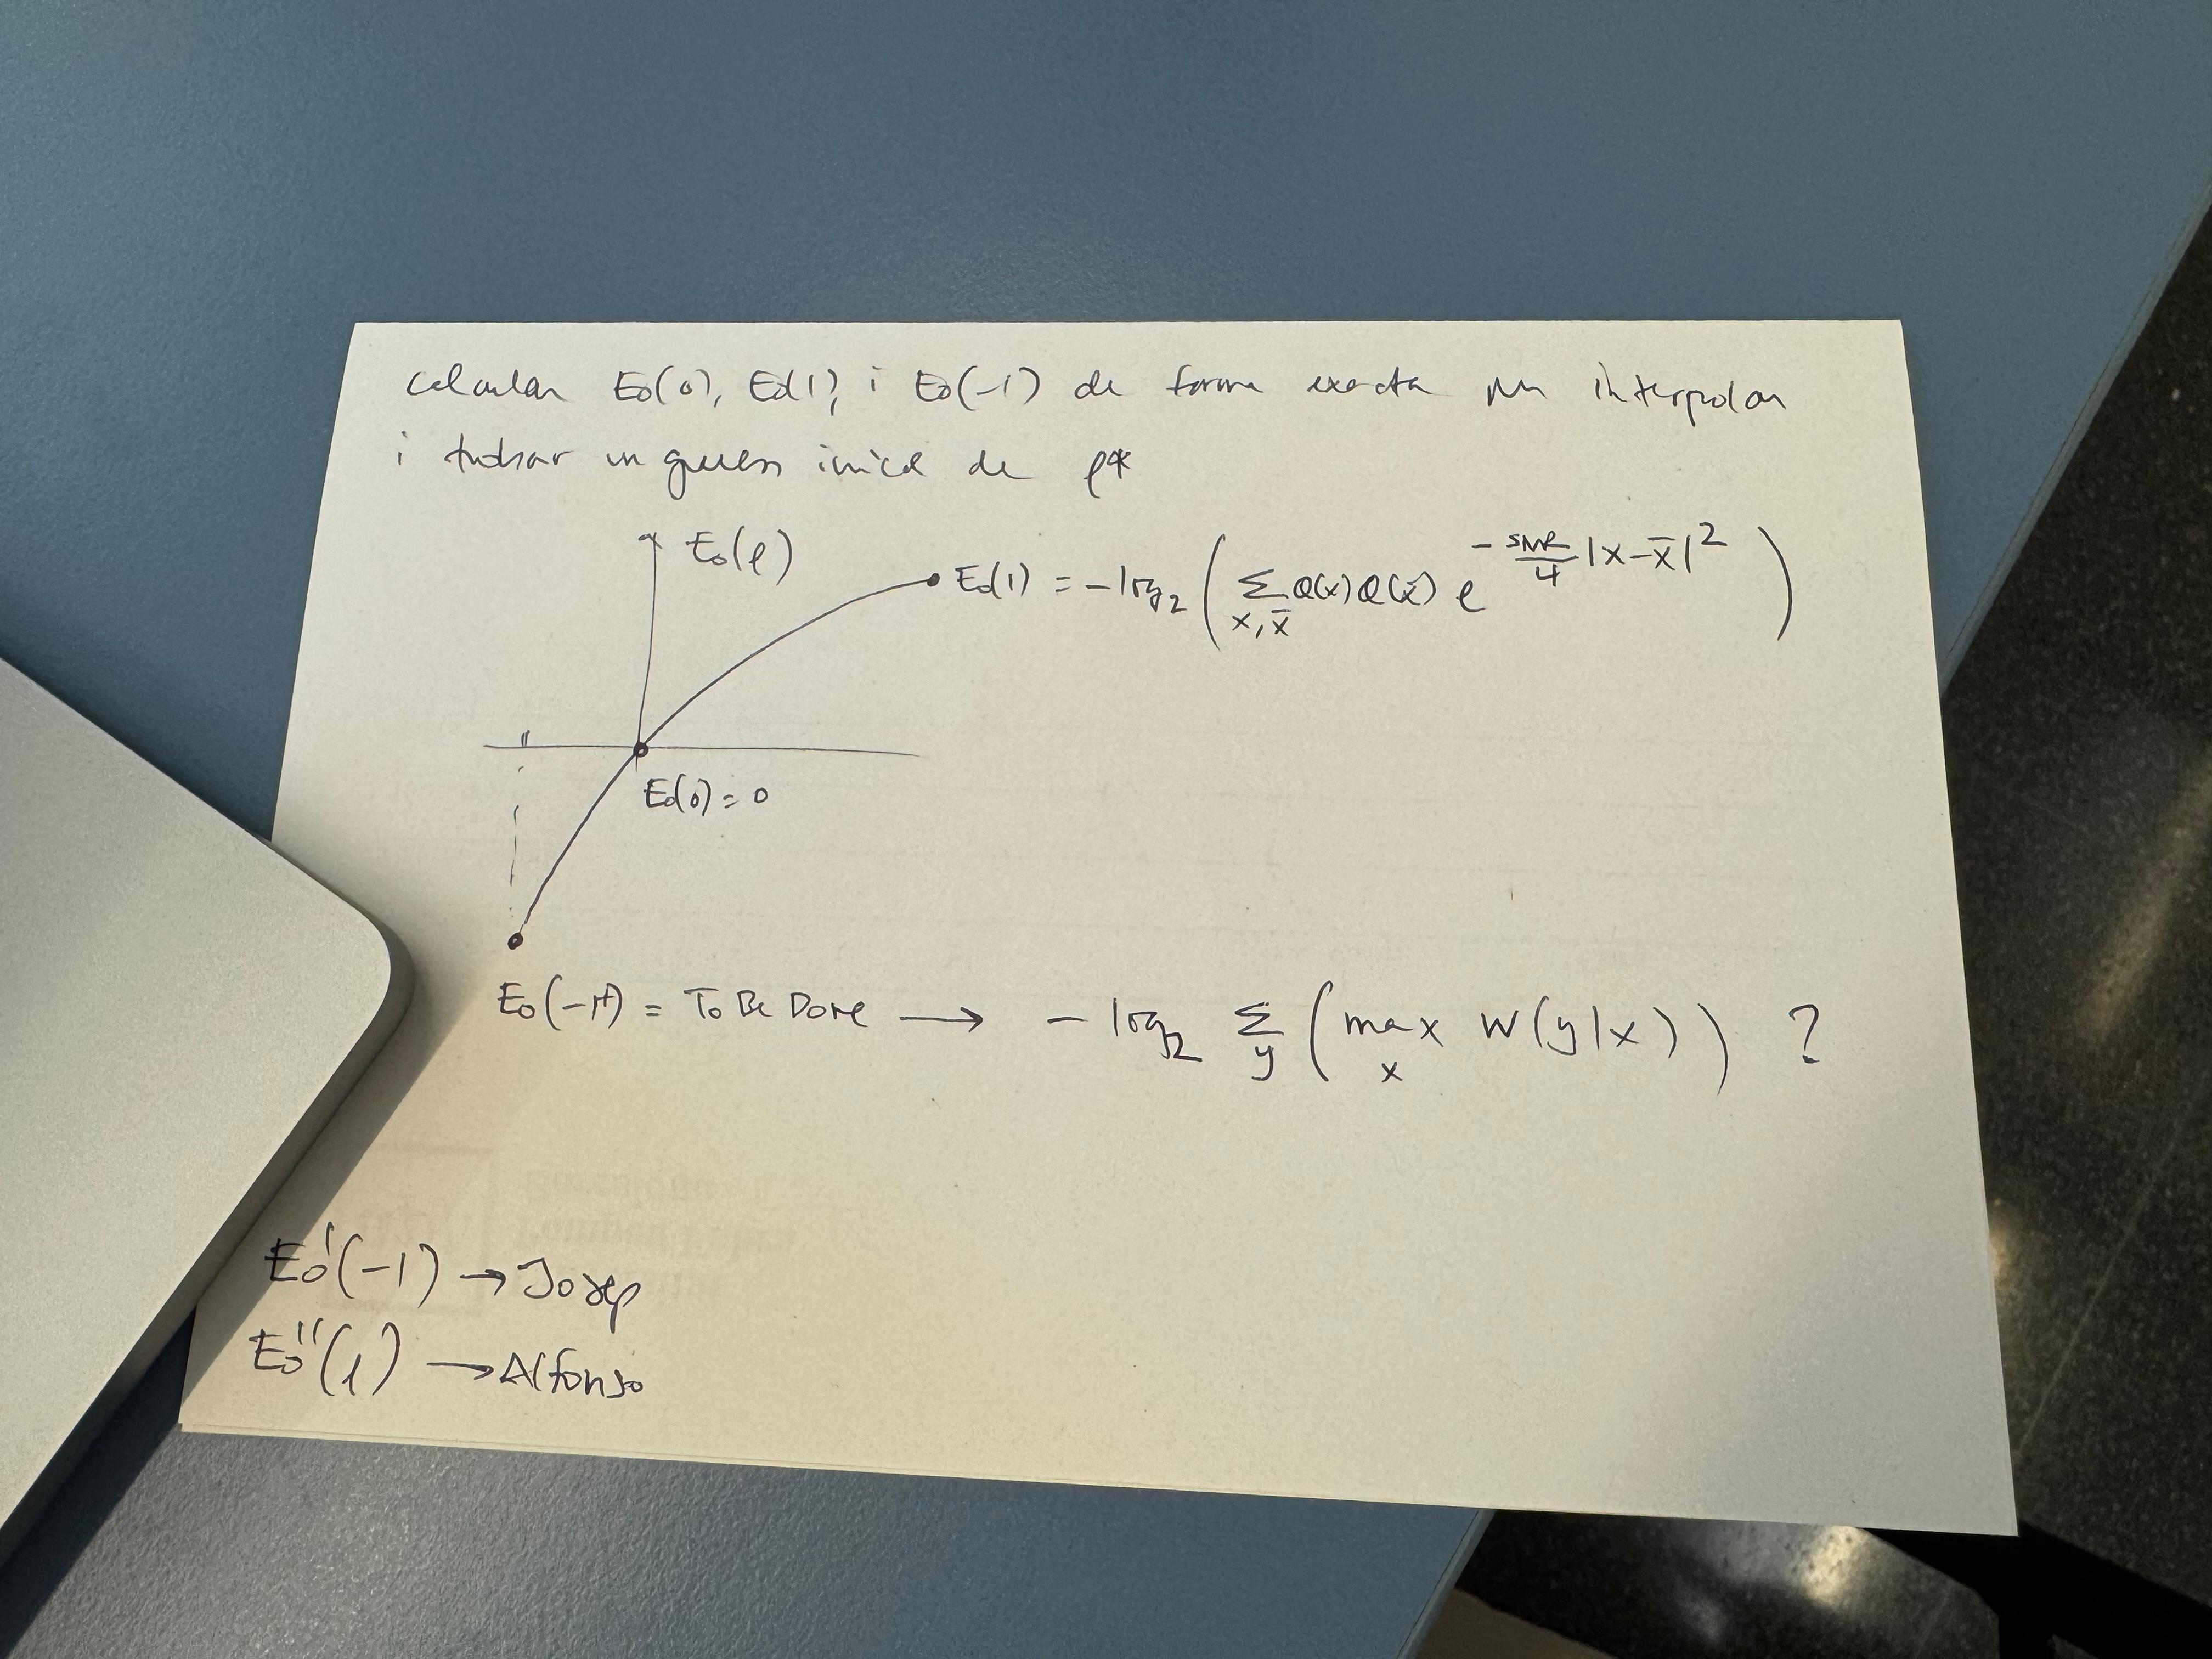 calcular E₀(0), E₀(1), i E₀(-1) de forma exacta per interpolar
i trobar un guess inicial de ρ*
E₀(ρ)
E₀(1) = -log₂ ( Σ_{x,x̄} Q(x)Q(x̄) e^{-SNR/4 |x-x̄|²} )
E₀(0) = 0
E₀(-1⁺) = To Be Done → - log₂ Σ_y ( max_x W(y|x) ) ?
E₀'(-1) → Josep
E₀''(1) → Alfonso